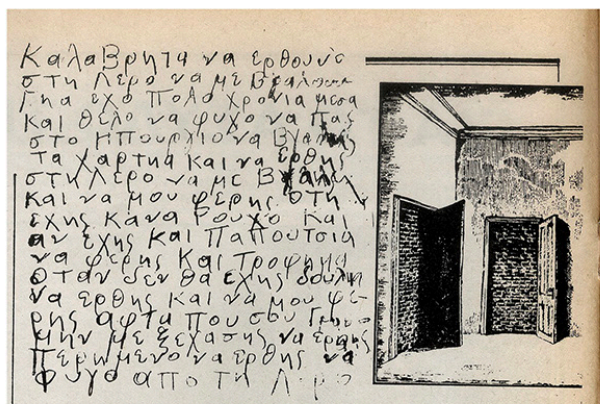 Καλαβρητα να ερθουνε
στη Λερο να με βγαλουνε
Γηα εχο Πολα χρονια μεσα
Και θελο να φυγο να πας
στο Ηπουργιο να βγαλης
τα χαρτηα Και να ερθης
στη Λερο να με βγαλης
Και να μου φερης οτη
εχης κανα Ρουχο Και
αν εχης Και Παπουτσια
να φερης Και τροφημα
Οταν δεν θα εχης δουλη
να ερθης Και να μου φε-
ρης αφτα που σου Γραφο
μην με ξεχασης να ερθης
Περημενο να ερθης να
φυγο απο τη Λερο